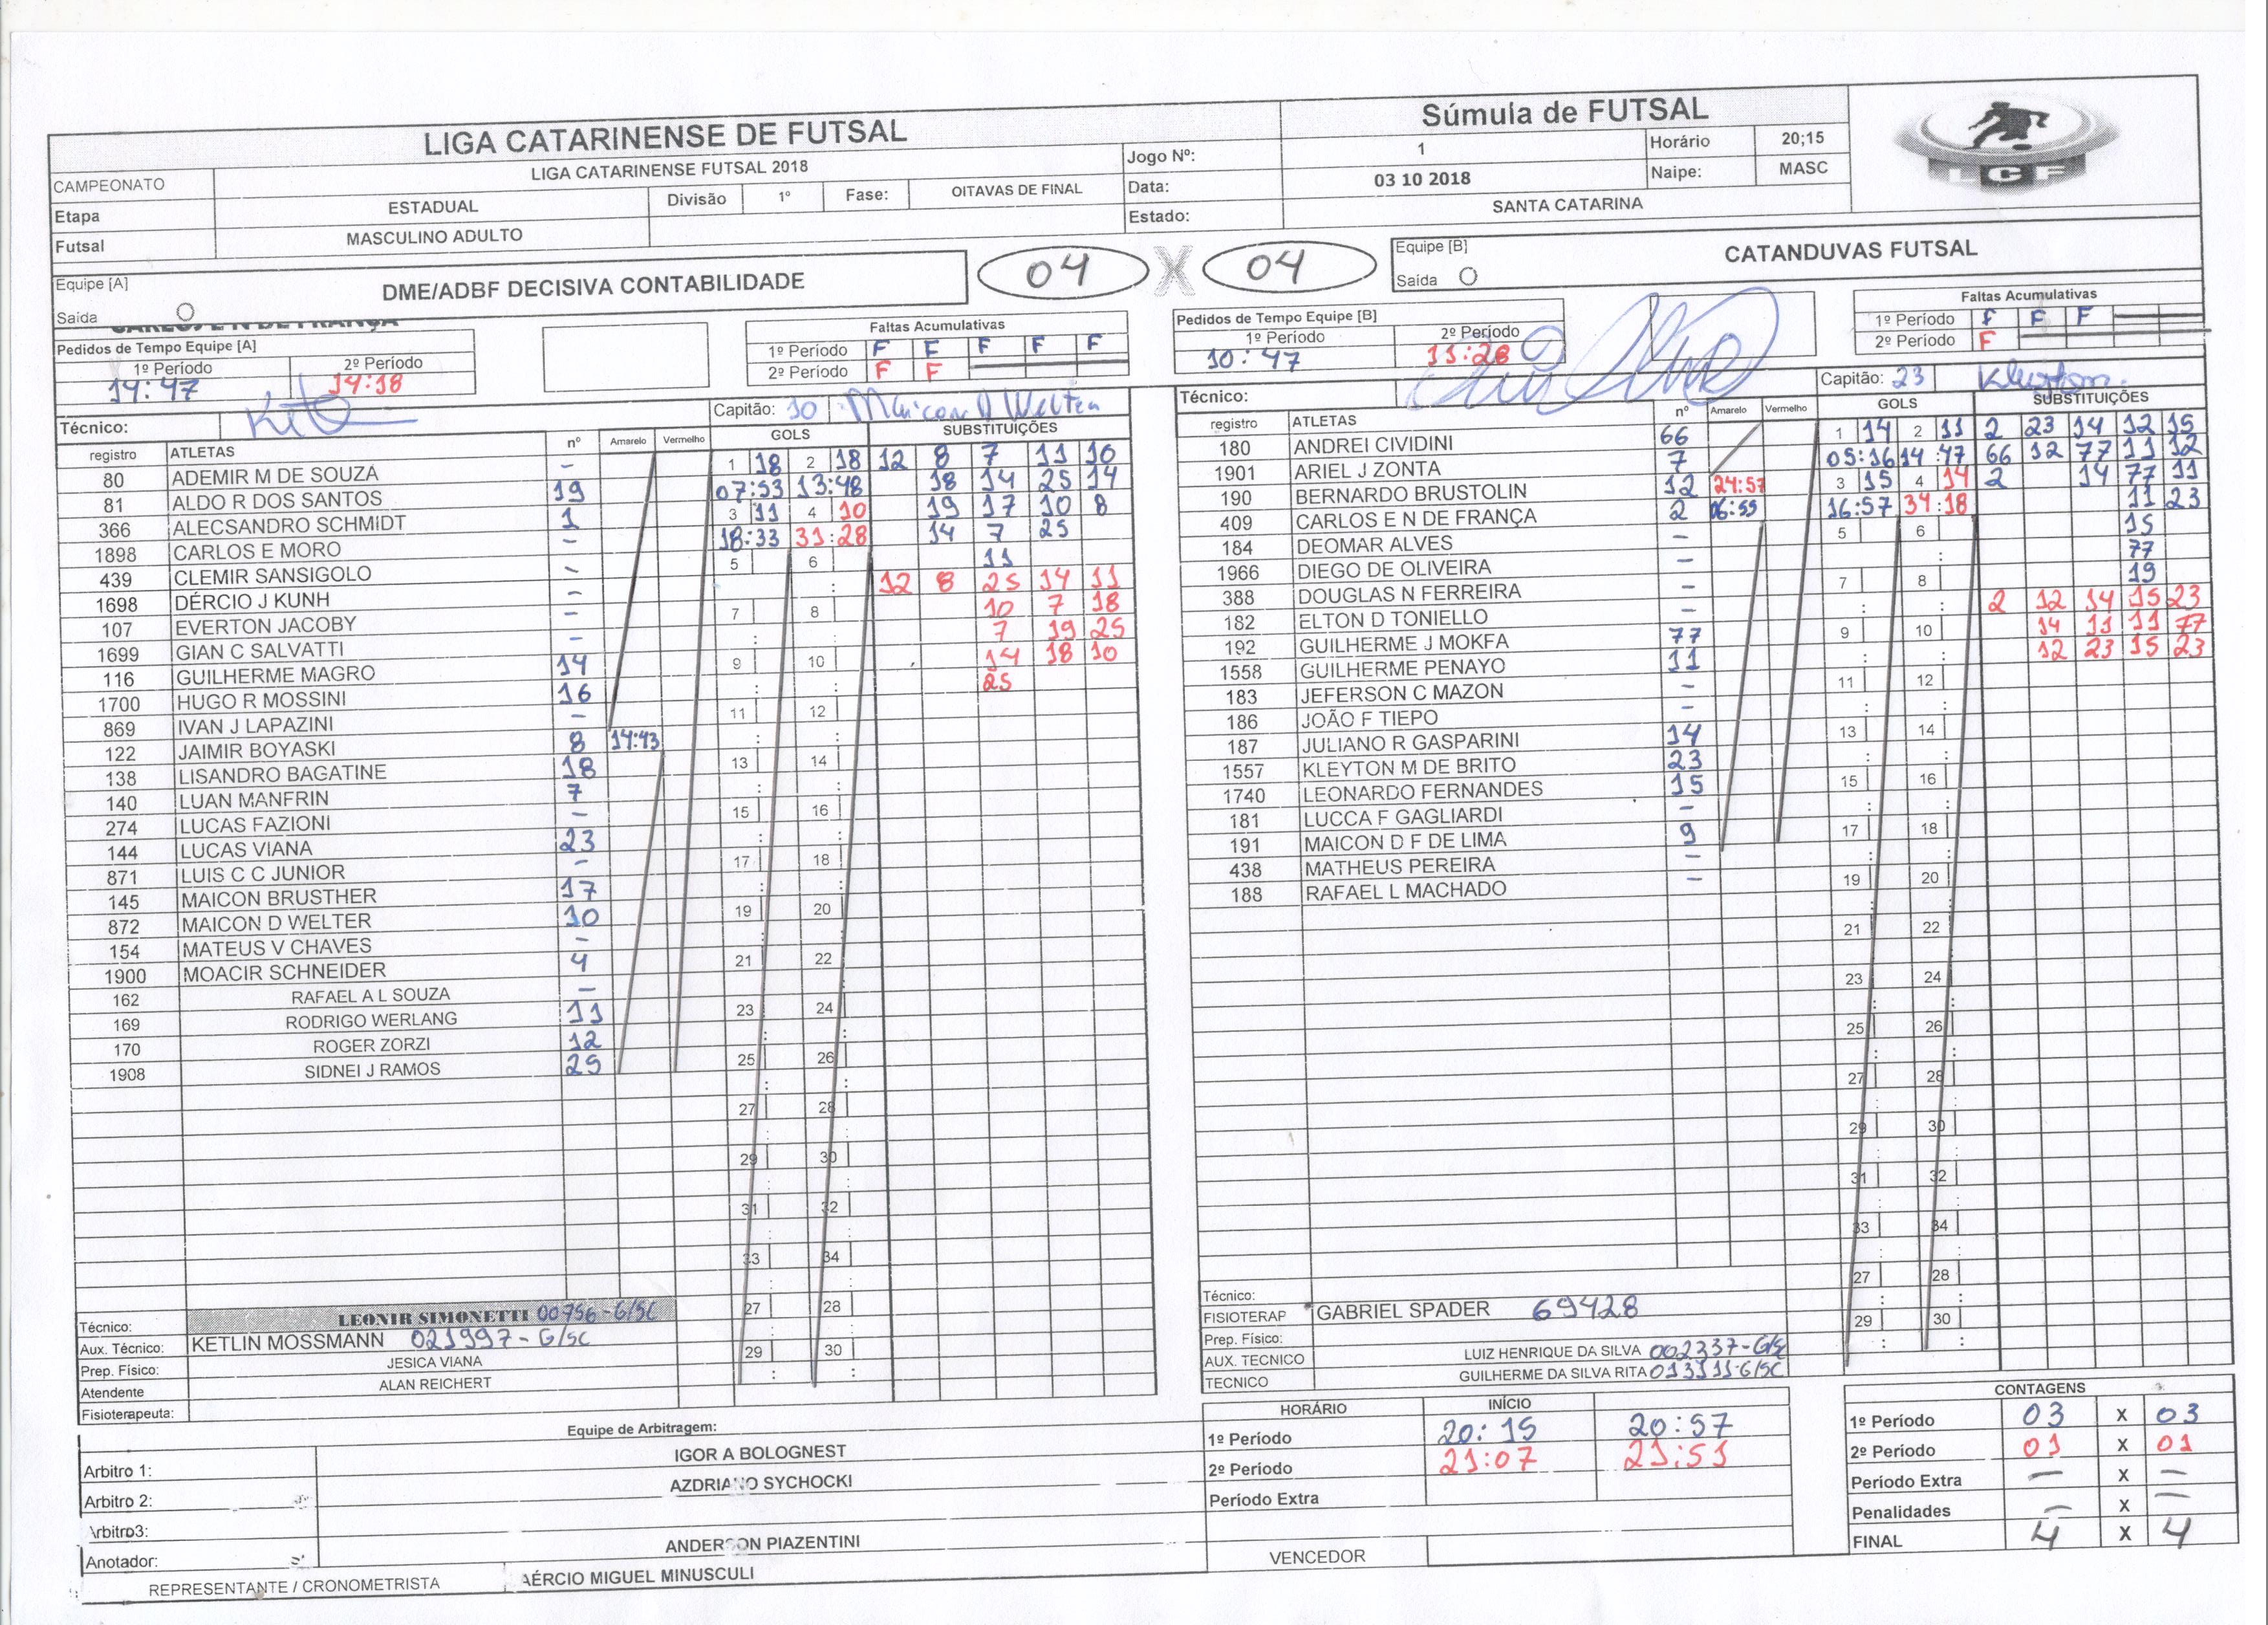 LIGA CATARINENSE DE FUTSAL
Súmula de FUTSAL
CAMPEONATO LIGA CATARINENSE FUTSAL 2018 Jogo Nº: 1 Horário 20;15
Etapa ESTADUAL Divisão 1º Fase: OITAVAS DE FINAL Data: 03 10 2018 Naipe: MASC
Futsal MASCULINO ADULTO Estado: SANTA CATARINA
LCF
Equipe [A] DME/ADBF DECISIVA CONTABILIDADE 04 X 04 Equipe [B] CATANDUVAS FUTSAL
Saída Saída
CARLOS E N DE FRANÇA
Pedidos de Tempo Equipe [A]
1º Período 2º Período
14:47 14:18
Faltas Acumulativas
1º Período F F F F F
2º Período F F
Técnico: Capitão: 10 Maicon D Welter
registro ATLETAS nº Amarelo Vermelho GOLS SUBSTITUIÇÕES
80 ADEMIR M DE SOUZA - 1 18 2 18 12 8 7 11 10
81 ALDO R DOS SANTOS 19 07:53 13:48 18 14 25 14
366 ALECSANDRO SCHMIDT 1 3 11 4 10 19 17 10 8
1898 CARLOS E MORO - 18:33 31:28 14 7 25
439 CLEMIR SANSIGOLO - 5 6 11
1698 DÉRCIO J KUNH - : 12 8 25 14 11
107 EVERTON JACOBY - 7 8 10 7 18
1699 GIAN C SALVATTI - : : 7 19 25
116 GUILHERME MAGRO 14 9 10 14 18 10
1700 HUGO R MOSSINI 16 : : 25
869 IVAN J LAPAZINI - 11 12
122 JAIMIR BOYASKI 8 14:43 : :
138 LISANDRO BAGATINE 18 13 14
140 LUAN MANFRIN 7 : :
274 LUCAS FAZIONI - 15 16
144 LUCAS VIANA 23 : :
871 LUIS C C JUNIOR - 17 18
145 MAICON BRUSTHER 17 : :
872 MAICON D WELTER 10 19 20
154 MATEUS V CHAVES - : :
1900 MOACIR SCHNEIDER 4 21 22
162 RAFAEL A L SOUZA -
169 RODRIGO WERLANG 11 23 24
170 ROGER ZORZI 12 : :
1908 SIDNEI J RAMOS 25 25 26
27 28
29 30
31 32
33 34
27 28
29 30
Técnico: LEONIR SIMONETTI 00756-G/SC
Aux. Técnico: KETLIN MOSSMANN 021997-G/SC
Prep. Físico: JESICA VIANA
Atendente ALAN REICHERT
Fisioterapeuta:
Pedidos de Tempo Equipe [B]
1º Período 2º Período
10:47 11:28
Faltas Acumulativas
1º Período F F F
2º Período F
Técnico: Capitão: 23 Kleyton
registro ATLETAS nº Amarelo Vermelho GOLS SUBSTITUIÇÕES
180 ANDREI CIVIDINI 66 1 14 2 11 2 23 14 12 15
1901 ARIEL J ZONTA 7 05:16 14:47 66 12 77 11 12
190 BERNARDO BRUSTOLIN 12 24:57 3 15 4 14 2 14 77 11
409 CARLOS E N DE FRANÇA 2 06:55 16:57 34:18 11 23
184 DEOMAR ALVES - 5 6 15
1966 DIEGO DE OLIVEIRA - : 77
388 DOUGLAS N FERREIRA - 7 8 19
182 ELTON D TONIELLO - : : 2 12 14 15 23
192 GUILHERME J MOKFA 77 9 10 14 11 11 77
1558 GUILHERME PENAYO 11 : : 12 23 15 23
183 JEFERSON C MAZON - 11 12
186 JOÃO F TIEPO - : :
187 JULIANO R GASPARINI 14 13 14
1557 KLEYTON M DE BRITO 23 : :
1740 LEONARDO FERNANDES 15 15 16
181 LUCCA F GAGLIARDI - : :
191 MAICON D F DE LIMA 9 17 18
438 MATHEUS PEREIRA - : :
188 RAFAEL L MACHADO - 19 20
21 22
23 24
25 26
27 28
29 30
31 32
33 34
27 28
29 30
Técnico:
FISIOTERAP GABRIEL SPADER 69428
Prep. Físico:
AUX. TECNICO LUIZ HENRIQUE DA SILVA 002337-G/SC
TECNICO GUILHERME DA SILVA RITA 013111-G/SC
Equipe de Arbitragem:
Arbitro 1: IGOR A BOLOGNEST
Arbitro 2: AZDRIANO SYCHOCKI
Arbitro3:
Anotador: ANDERSON PIAZENTINI
REPRESENTANTE / CRONOMETRISTA AÉRCIO MIGUEL MINUSCULI
HORÁRIO INÍCIO
1º Período 20:15 20:57
2º Período 21:07 21:51
Período Extra
VENCEDOR
CONTAGENS
1º Período 03 X 03
2º Período 01 X 01
Período Extra — X —
Penalidades — X —
FINAL 4 X 4